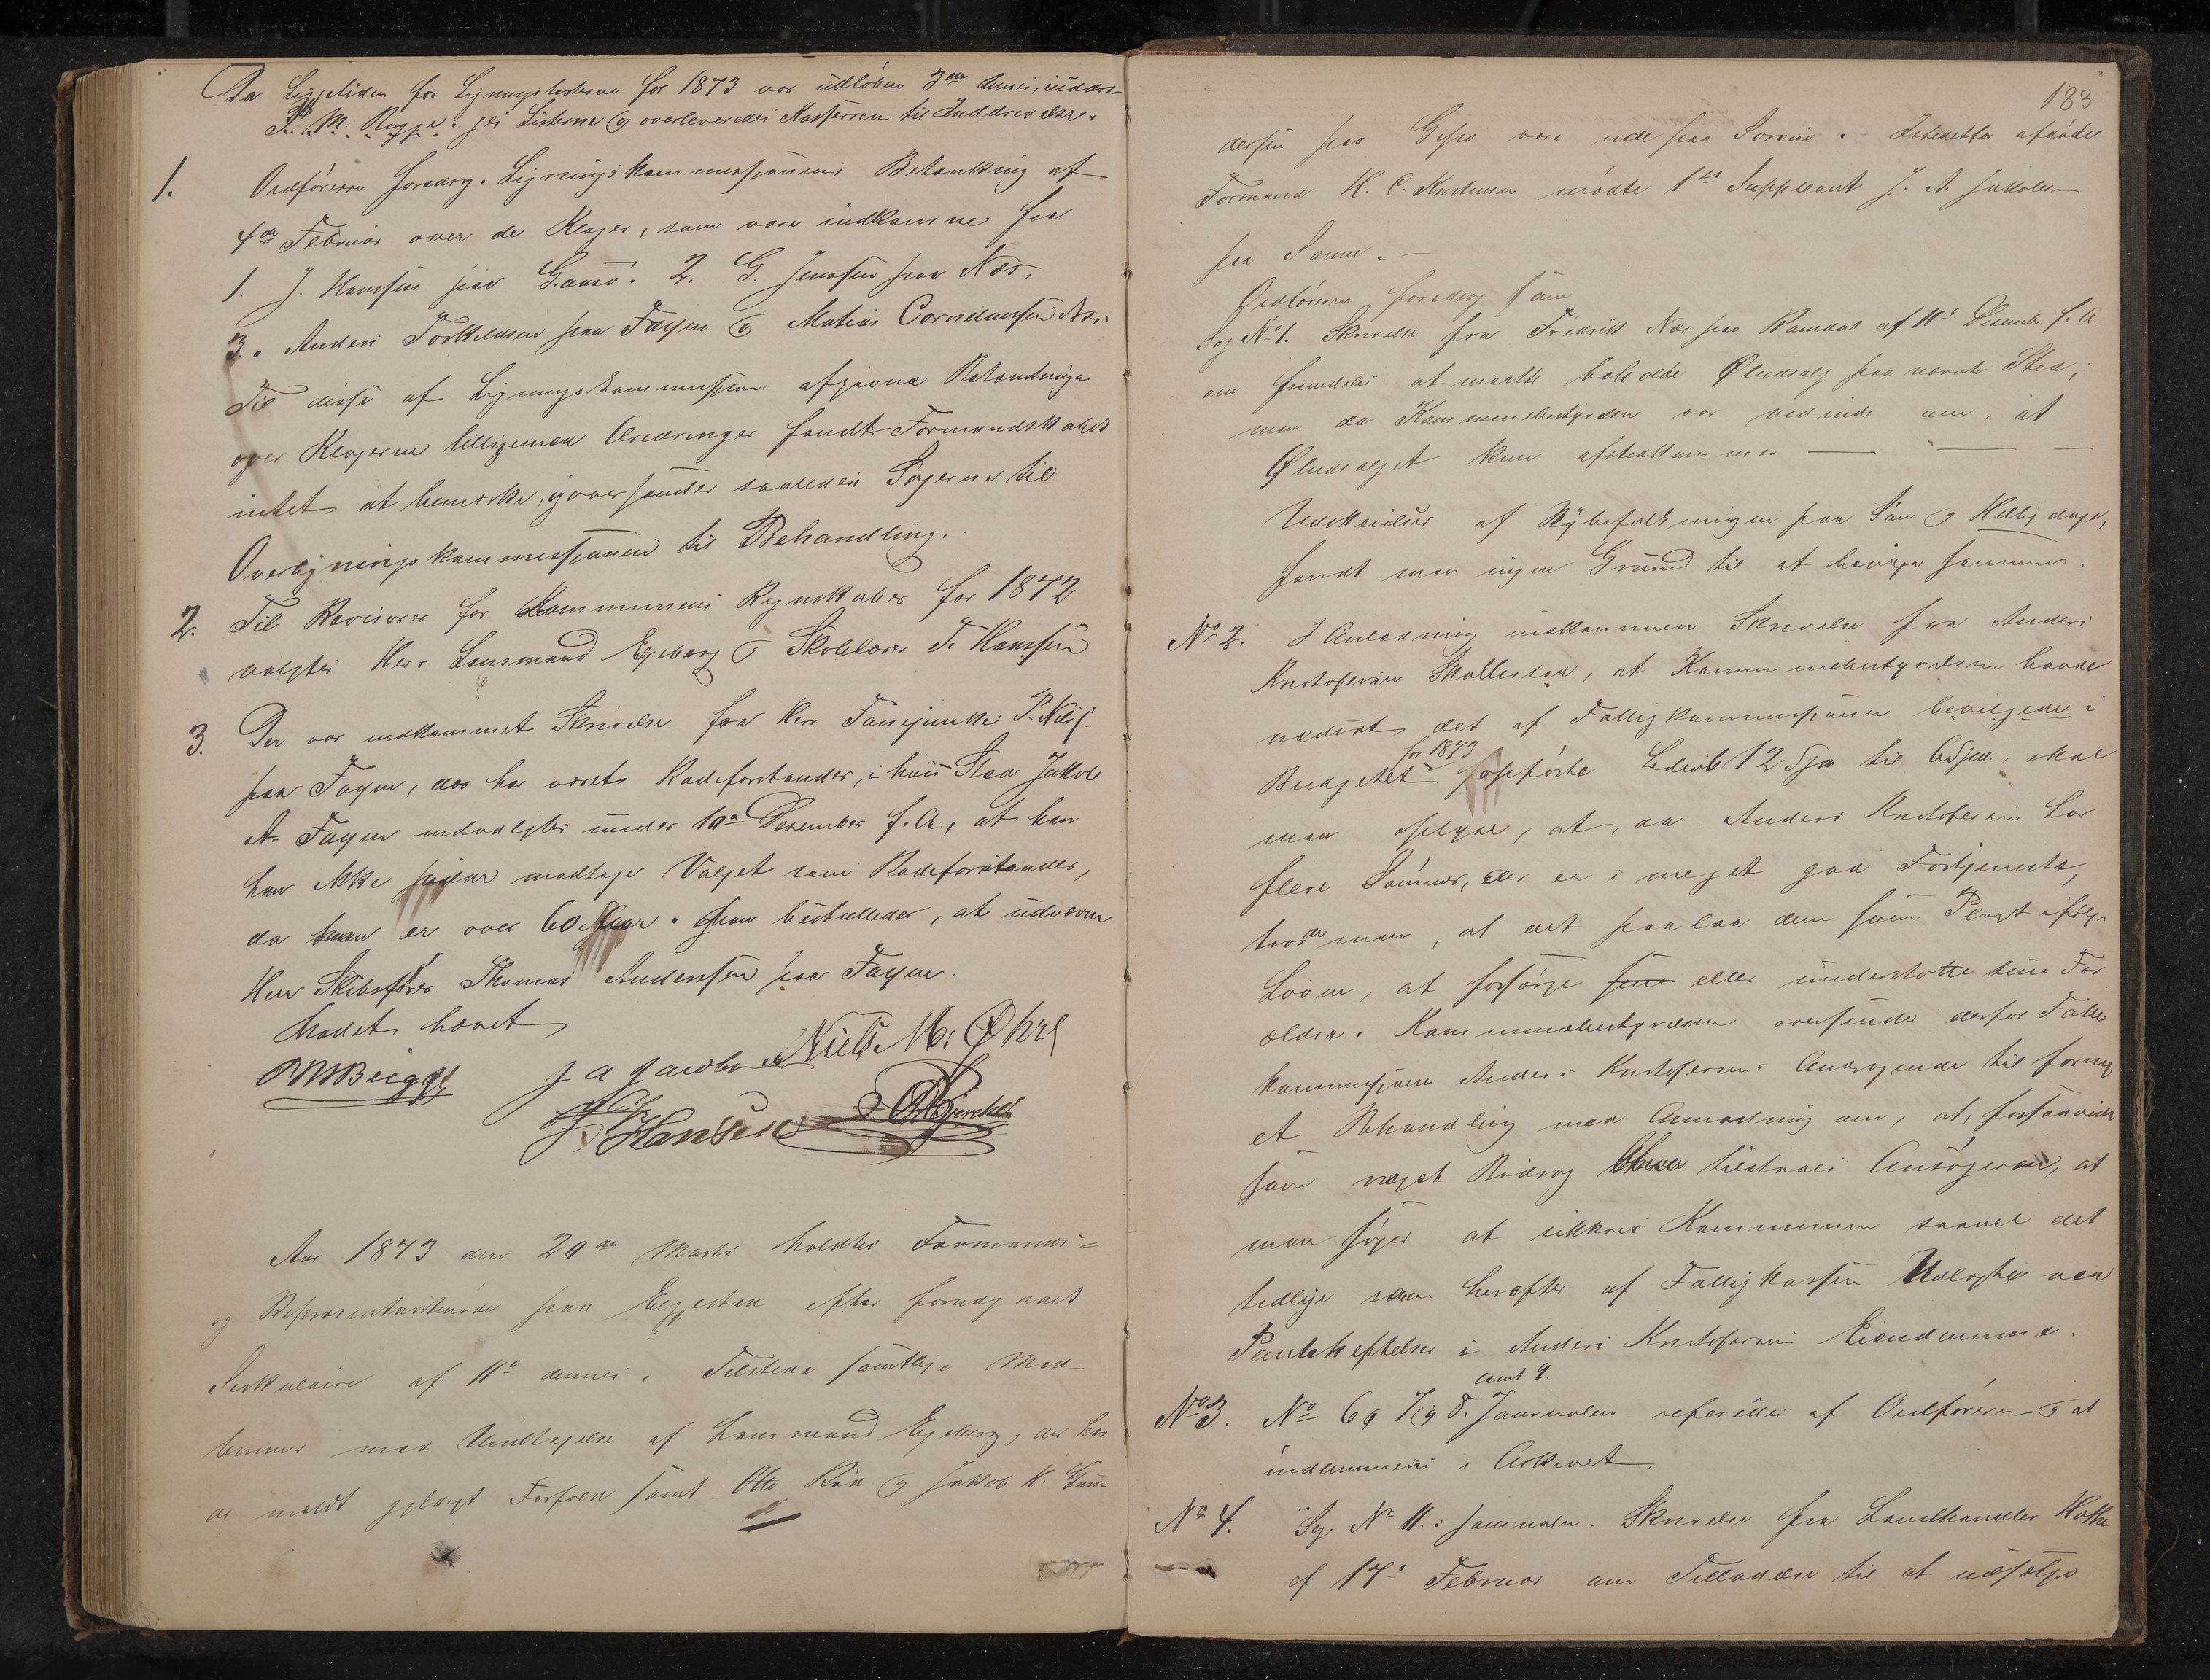 Da Liggetiden for Ligningslisterne for 1873 var udløben 3die dennes, uddrs-
P. M. Bugge: jes Listerne og overleveredes Kasserren til Inddrivelse.
1. Ordføreren foredrog. Ligningskommissionens Betænkning af
4de Februar over de Klager, som vare indkomne fra
1. J. Hanssen paa 2. G. Jenssen paa Nes.
3. Anders Torkildsen paa Føyen og Matias Cornelinssen Nes.
Til disse af Ligningskommissjonen afgivne Betænkninger
over Klagerne tilligemed Ændringer fandt Formandskabet
intet at bemærke, og oversender saaledes Sagerne til
Overligningskommissjonen til Behandling.
2. Til Revisorer for Kommunens Regnskaber for 1872
valgtes Herr Lensmand Egeberg og Skolelærer T. Hanssen
3. Der var indkommet Skrivelse fra Herr Fanejunker P. Nils.
paa Føyen, der har været Rodeforstander, i hvis Sted Jakob
A. Føyen indvalgtes under 19de Desember f. A., at han
han ikke modtage Valget som Rodeforstander,
da han er over 60 Aar. Man bestemte, at udnævne
Herr Skibsfører Thomas Anderssen paa Føyen.
Mødet hævet
OMBugge J A Jacobsen Niels M. Øhre
J Hansen O Bjercke
Aar 1873 den 29de Marts holdtes Formands=
og Repræsentantmøde paa efter foregaaet
Sirkulaire af 11te dennes. Tilstede samtlige Med-
lemmer med Undtagelse af Lensmand Egeberg, der har
de meldt gyldigt Forfald samt Otto Röd og Jakob K.
183
derssen paa vare ude paa Soreise. Istedetfor afdøde
Formand H. C. Knutssen mødte 1ste Suppleant J. A. Jakobsen
paa Sanne.-
Ordføreren foredrog som
Sag No 1. Skrivelse fra Fredrik Nes paa Ramdal af 11te Desember f. A.
om fremdeles at maatte beholde Øludsalg paa nævnte Sted;
men da Kommunebestyrelsen var vidende om, at
Øludsalget kun afstedkommer
Udskeielser af Bybefolkningen paa Søn og Hellig dage,
fandt man ingen Grund til at bevilge samme.
No 2. I Anledning indkommen Skrivelse fra Anders
Kristofersen Skallestad, at Kommunebestyrelsen havde
nedsat det af Fattigkommissjonen bevilgede i
Budgetet for 1873 opførte Beløb 12 Spd til 6 Spd., skal
man oplyse, at, da Anders Kristofersen har
flere Sønner, der er i meget god Fortjeneste,
trode man, at det paalaa dem som Pligt ifølge
Loven, at forsørge sine eller understøtte sine For
ældre. Kommunebestyrelsen oversender derfor Fattig
kommissjonen Anders Kristofersens Andragende til forny
et Behandling med Anmodning om, at, forsaavidt
som noget Bidrag bliver tilstaaet Ansøgeren, at
man søger at sikkre Kommunen saavel det
tidligere som herefter af Fattigkassen Udlagte ved
Pantehæftelser i Anders Kristofersens Eiendomme.
No 3. No 6 og 7 og 8. samt 9. Journalen refereredes af Ordføreren og at
indlemmes i Arkivet.
No 4. Sag No 11. i Journalen. Skrivelse fra Landhandler
af 17de Februar om Tilladelse til at udsælge